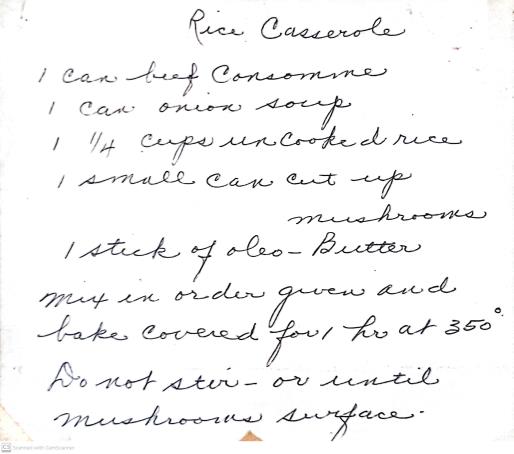 Rice Casserole
1 can beef Consomme
1 can onion soup
1 1/4 cups uncooked rice
1 small can cut up
mushrooms
1 stick of oleo - Butter
Mix in order given and
bake covered for 1 hr at 350°
Do not stir - or until
mushrooms surface.
CS Scanned with CamScanner